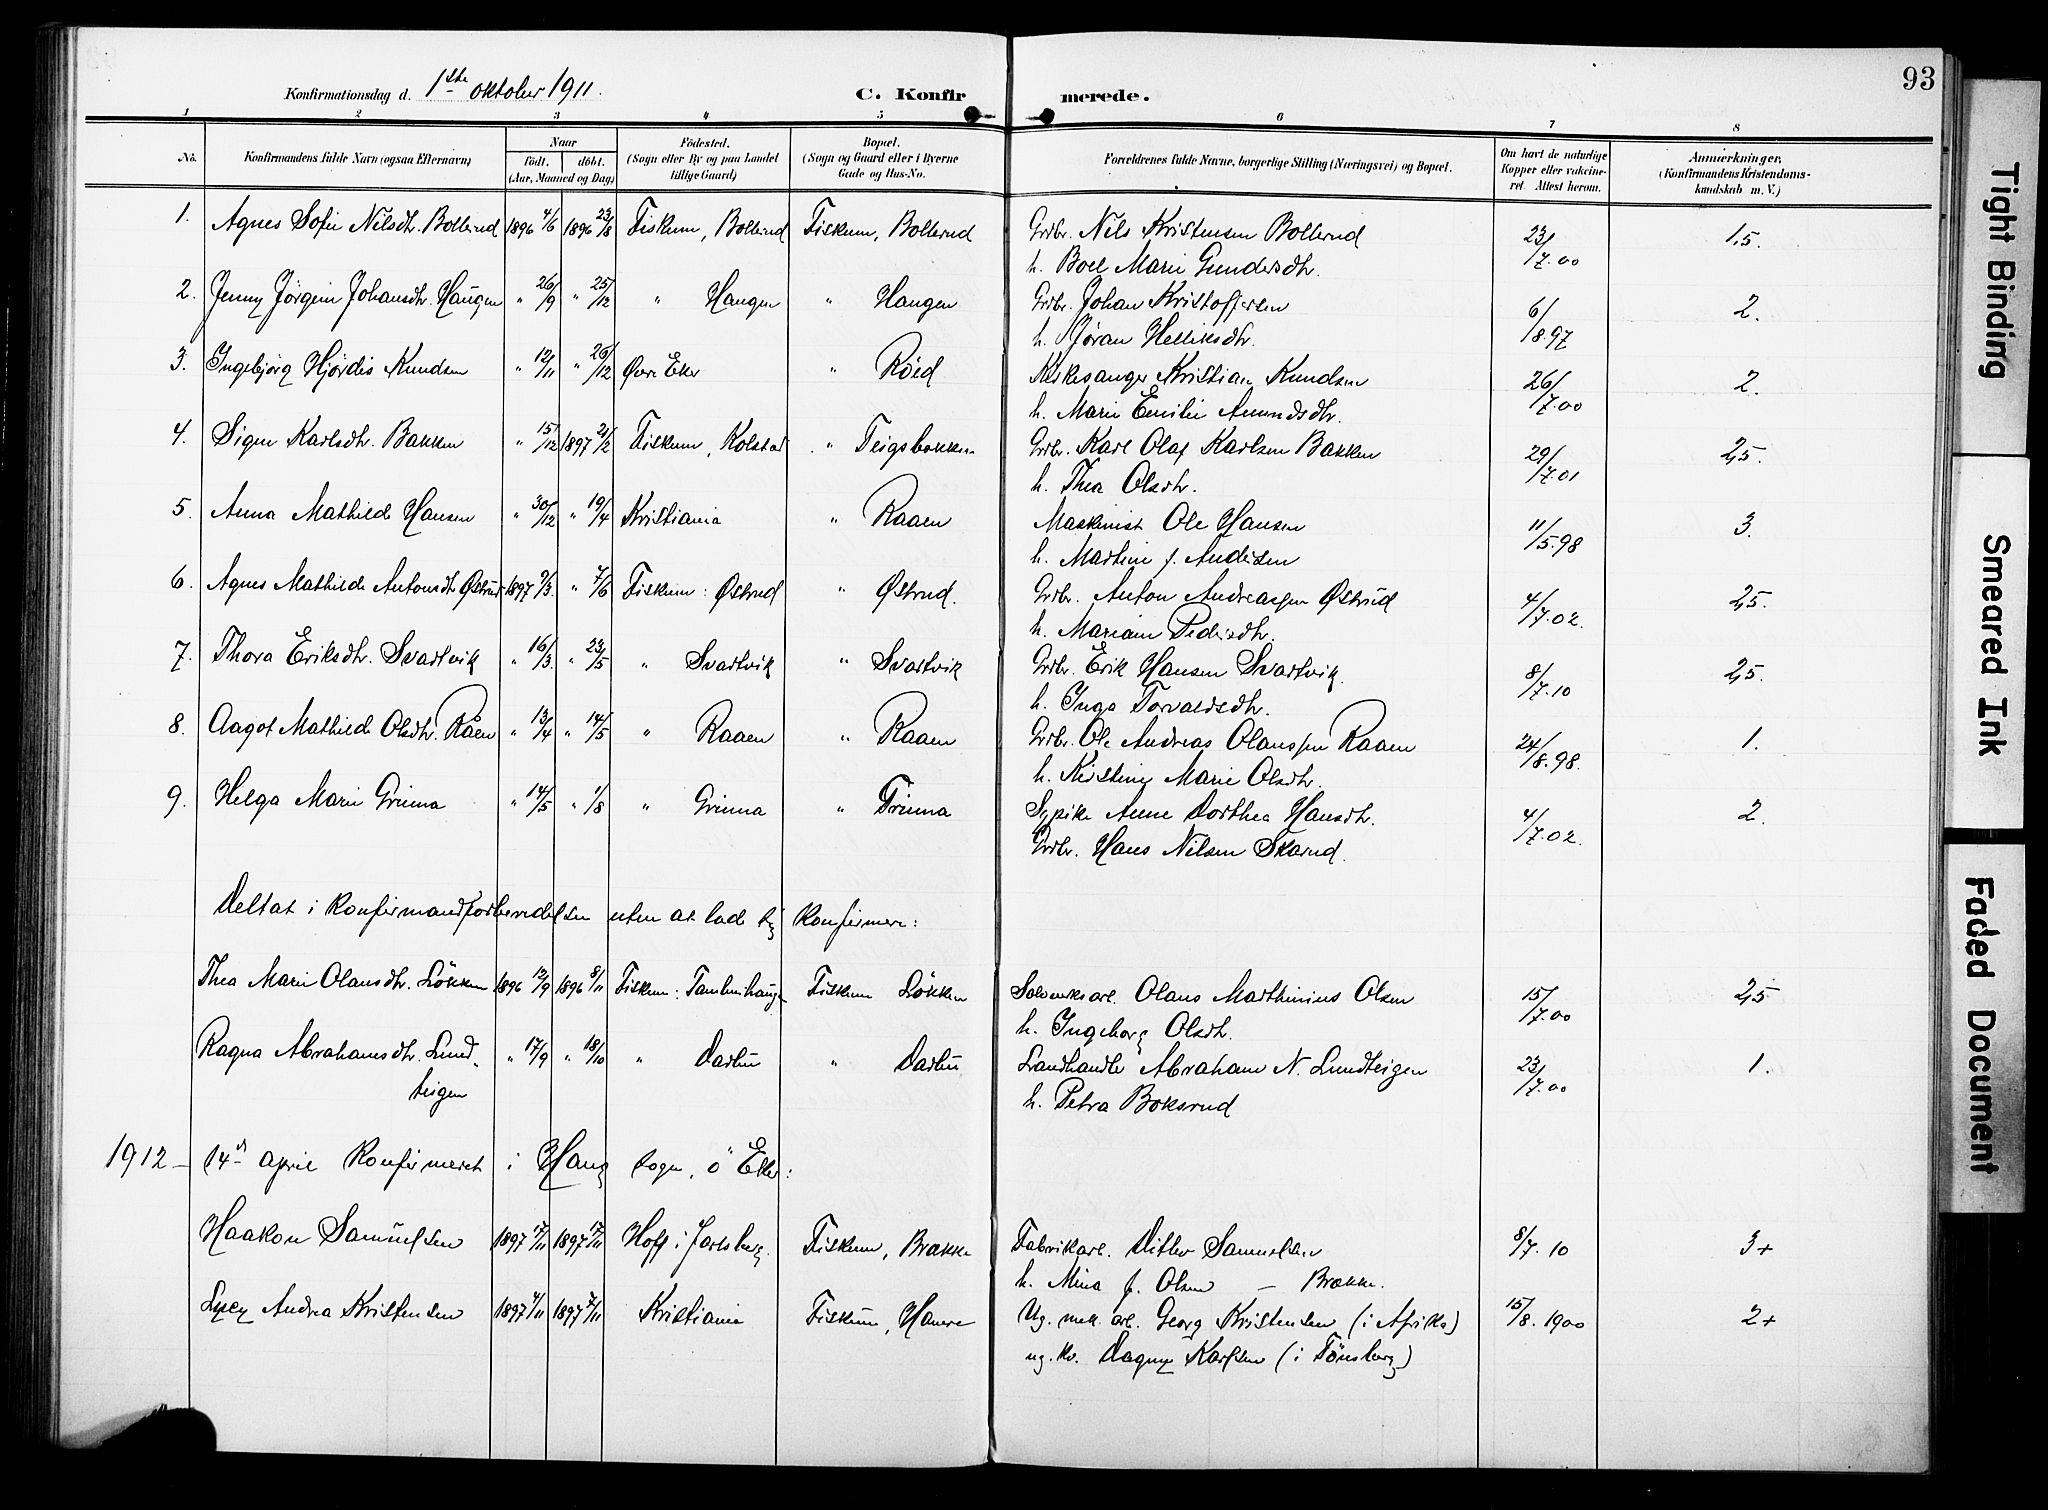 93
Konfirmationsdag d. 1ste oktober 1911. C. Konfir merede.
1 2 3 4 5 6 7 8
No. Konfirmandens fulde Navn (ogsaa Efternavn) Naar født. døbt. (Aar, Maaned og Dag) Fødested. (Sogn eller By og paa Landet tillige Gaard) Bopæl. (Sogn og Gaard eller i Byerne Gade og Hus-No. Forældrenes fulde Navne, borgerlige Stilling (Næringsvei) og Bopæl. Om havt de naturlige Kopper eller vakcineret. Attest herom. Anmærkninger. (Konfirmandens Kristendomskundskab m. V.)
1. Agnes Sofie Nilsdtr. Bollerud 1896 4/6 1896 23/8 Fiskum, Bollerud Fiskum, Bollerud Grdbr. Nils Kristensen Bollerud 23/7.00 1,5.
h. Boel Marie Gundersdtr.
2. Jenny Jørgine Johansdtr. Haugen " 26/9 " 25/12 " Haugen " Haugen Grdbr. Johan Kristoffersen 6/8.97 2.
h. Jøran Helliksdtr.
3. Ingebjörg Hjördis Knudsen " 12/11 " 26/12 Øvre Eker " Röed Kirkesanger Kristian Knudsen 26/7.00 2.
h. Marie Emilie Amundsdtr.
4. Signe Karlsdtr. Bakken " 15/12 1897 21/2 Fiskum, Kolstad " Teigsbakken Grdbr. Karl Olaf Karlsen Bakken 29/7.01 2,5.
h. Thea Olsdtr.
5. Anna Mathilde Hansen " 30/12 " 19/4 Kristiania " Raaen Maskinist Ole Hansen 11/5.98 3.
h. Martine f. Andersen
6. Agnes Mathilde Antonsdtr Østrud 1897 9/3. " 7/6 Fiskum: Østrud " Østrud. Grdbr. Anton Andreassen Østrud 4/7.02. 2,5.
h. Mariane Pedersdtr.
7. Thora Eriksdtr. Svartvik " 16/3. " 23/5 " Svartvik " Svartvik Grdbr. Erik Hansen Svartvik. 8/7.10 2,5.
h. Inga Torvaldsdtr.
8. Aagot Mathilde Olsdtr. Råen " 13/4 " 14/5 " Raaen " Raaen Grdbr. Ole Andreas Olaussen Raaen 24/8.98. 1.
h. Kirstine Marie Olsdtr.
9. Helga Marie Grinna " 14/5 " 1/8 " Grinna " Grinna Sypike Anne Dorthea Hansdtr. 4/7.02. 2.
Grdbr. Hans Nilsen Skarud.
Deltat i konfirmandforberedelsen uten at lade sig konfirmere:
Thea Marie Olausdtr. Lökken 1896 12/9 1896 8/11 Fiskum: Tambenhaugen Fiskum Lökken Sølvverksarb. Olaus Marthinius Olsen 15/7.00 2,5
h. Ingeborg Olsdtr.
Ragna Abrahamsdtr. Lund- " 17/9 " 18/10 " Darbu " Darbu Landhandler Abraham N. Lundteigen 23/7.00 1.
teigen h. Petra Boksrud
1912 – 14de april konfirmeret i Haug sogn, ö Eker:
Haakon Samuelsen 1897 17/11 1897 17/11 Hoff i Jarlsberg. Fiskum, Brække Fabrikarb. Ditlev Samuelsen 8/7.10 3+
h. Mina f. Olsen – Brække.
Lyey Andrea Kristensen 1897 4/11 1897 7/11 Kristiania Fiskum, Havere Ug. mek. arb. Georg Kristensen (i Afrika) 15/8.1900 2+
ug. kv. Dagny Karlsen (i Tönsberg)
Tight Binding
Smeared Ink
Faded Document